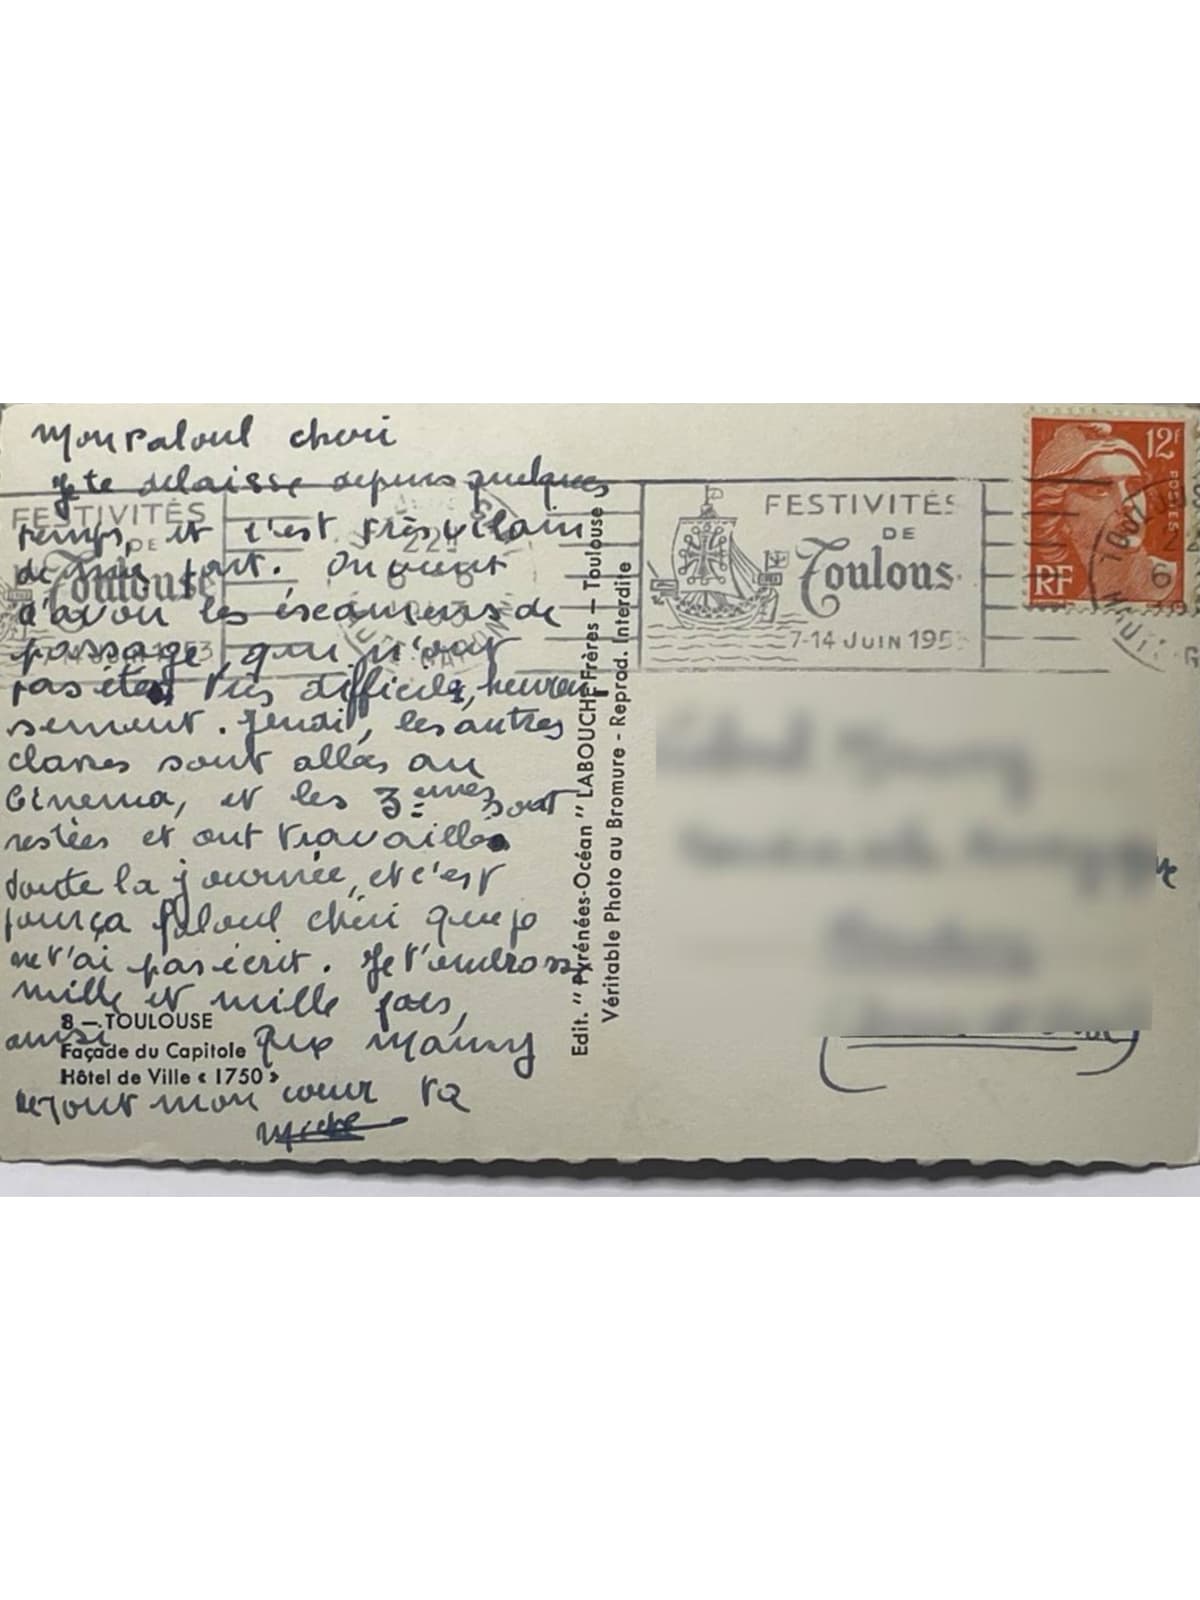 Mon Paloul chéri
Je te délaisse depuis quelques
temps, et c'est très vilain
de ma part. On vient
d'avoir les éxamens de
passage, qui n'ont
pas étés très difficile, heureu
sement. Jeudi, les autres
classes sont allés au
Cinema, et les 3èmes sont
restées et ont travaillés
toute la journée, et c'est
pour ça Paloul chéri que je
ne t'ai pas écrit. Je t'embrasse
mille et mille fois,
ainsi que Mamy
de tout mon cœur ta
8 — TOULOUSE
Façade du Capitole
Hôtel de Ville « 1750 »
Edit. "Pyrénées-Océan" LABOUCHE Frères — Toulouse
Véritable Photo au Bromure - Reprod. Interdite
FESTIVITÉS
DE
Toulouse
53
FESTIVITÉS
DE
Toulous
7-14 JUIN 195
12F
POSTES
RF